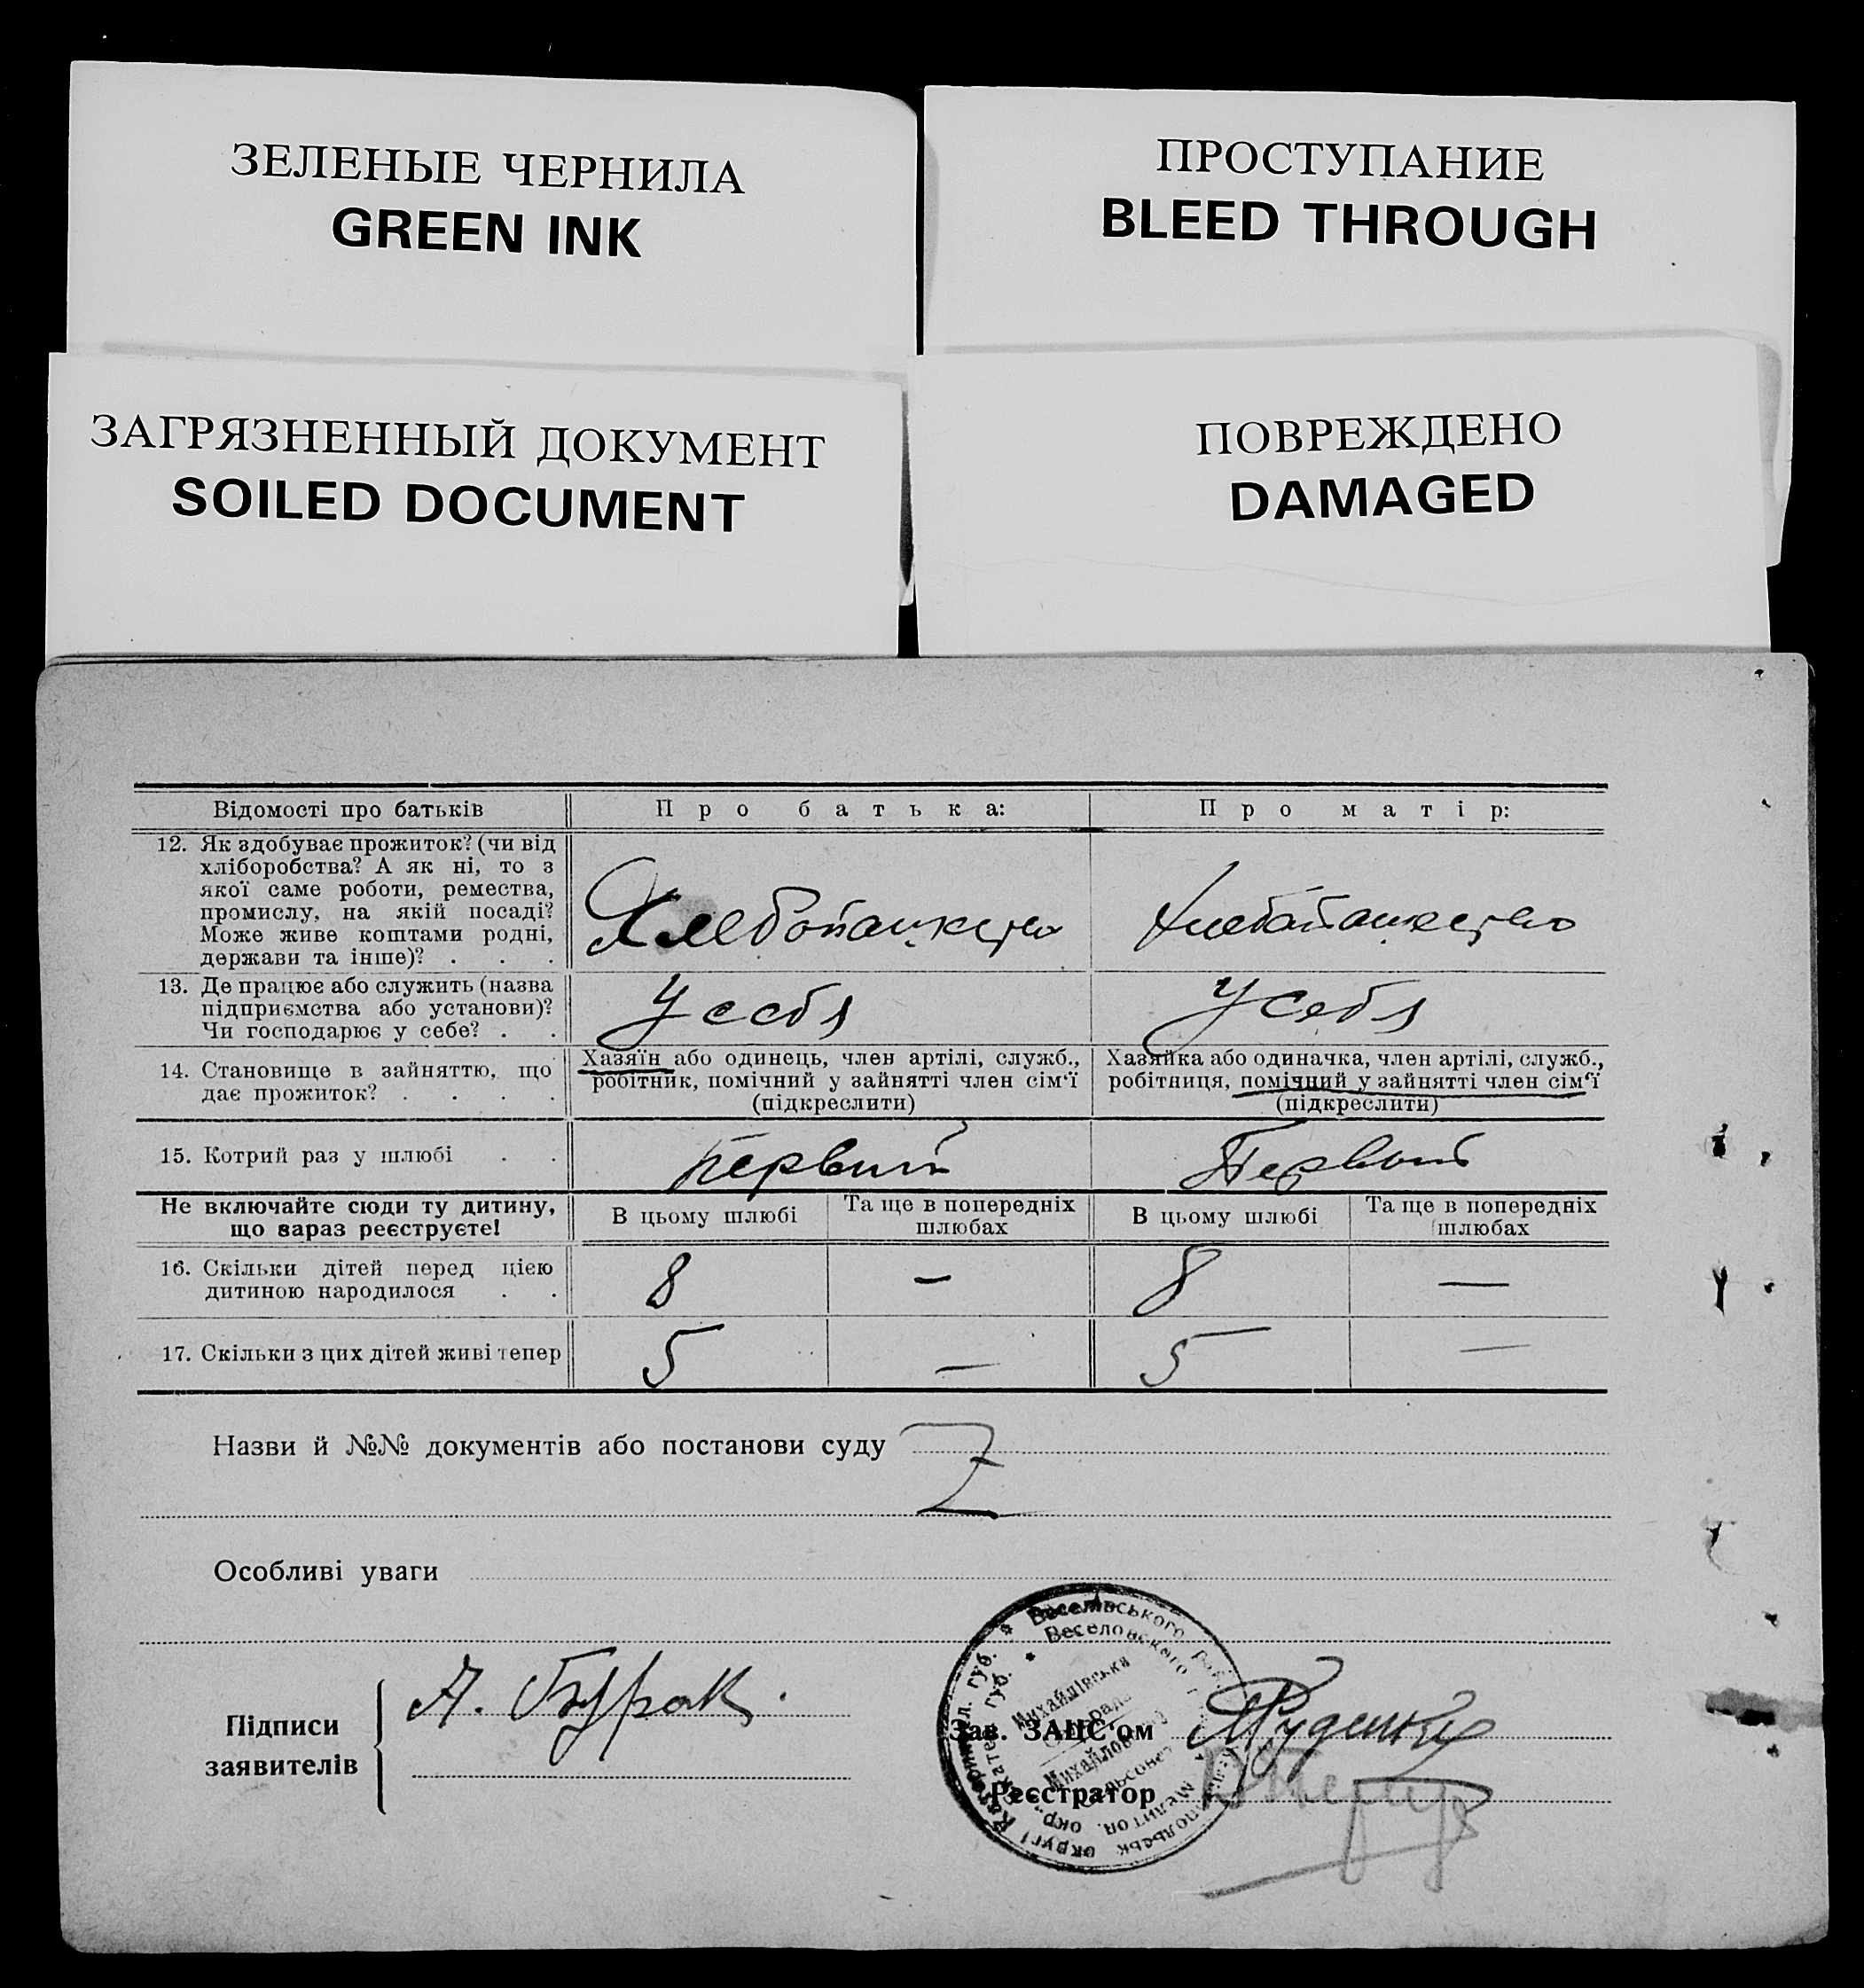 ЗЕЛЕНЫЕ ЧЕРНИЛА
GREEN INK
ПРОСТУПАНИЕ
BLEED THROUGH
ЗАГРЯЗНЕННЫЙ ДОКУМЕНТ
SOILED DOCUMENT
ПОВРЕЖДЕНО
DAMAGED
Відомості про батьків Про батька: Про матір:
12. Як здобуває прожиток? (чи від
хліборобства? А як ні, то з
якої саме роботи, ремества,
промислу, на якій посаді?
Може живе коштами родні,
держави та інше)? . . .
Хлебопашество Хлебопашество
13. Де працює або служить (назва
підприємства або установи)?
Чи господарює у себе? . .
У себя У себя
14. Становище в зайняттю, що
дає прожиток? . . . .
Хазяїн або одинець, член артілі, служб.,
робітник, помічний у зайнятті член сім'ї
(підкреслити)
Хазяйка або одиначка, член артілі, служб.,
робітниця, помічний у зайнятті член сім'ї
(підкреслити)
15. Котрий раз у шлюбі . . первый Первый
Не включайте сюди ту дитину,
що зараз реєструєте!
В цьому шлюбі
Та ще в попередніх
шлюбах
В цьому шлюбі
Та ще в попередніх
шлюбах
16. Скільки дітей перед цією
дитиною народилося . .
8 — 8 —
17. Скільки з цих дітей живі тепер 5 — 5 —
Назви й №№ документів або постанови суду
Особливі уваги
Підписи
заявителів
А. Бурак.
Зав. ЗАЦС'ом Руденко
Реєстратор
Веселівського
Веселовского
Михайлівська